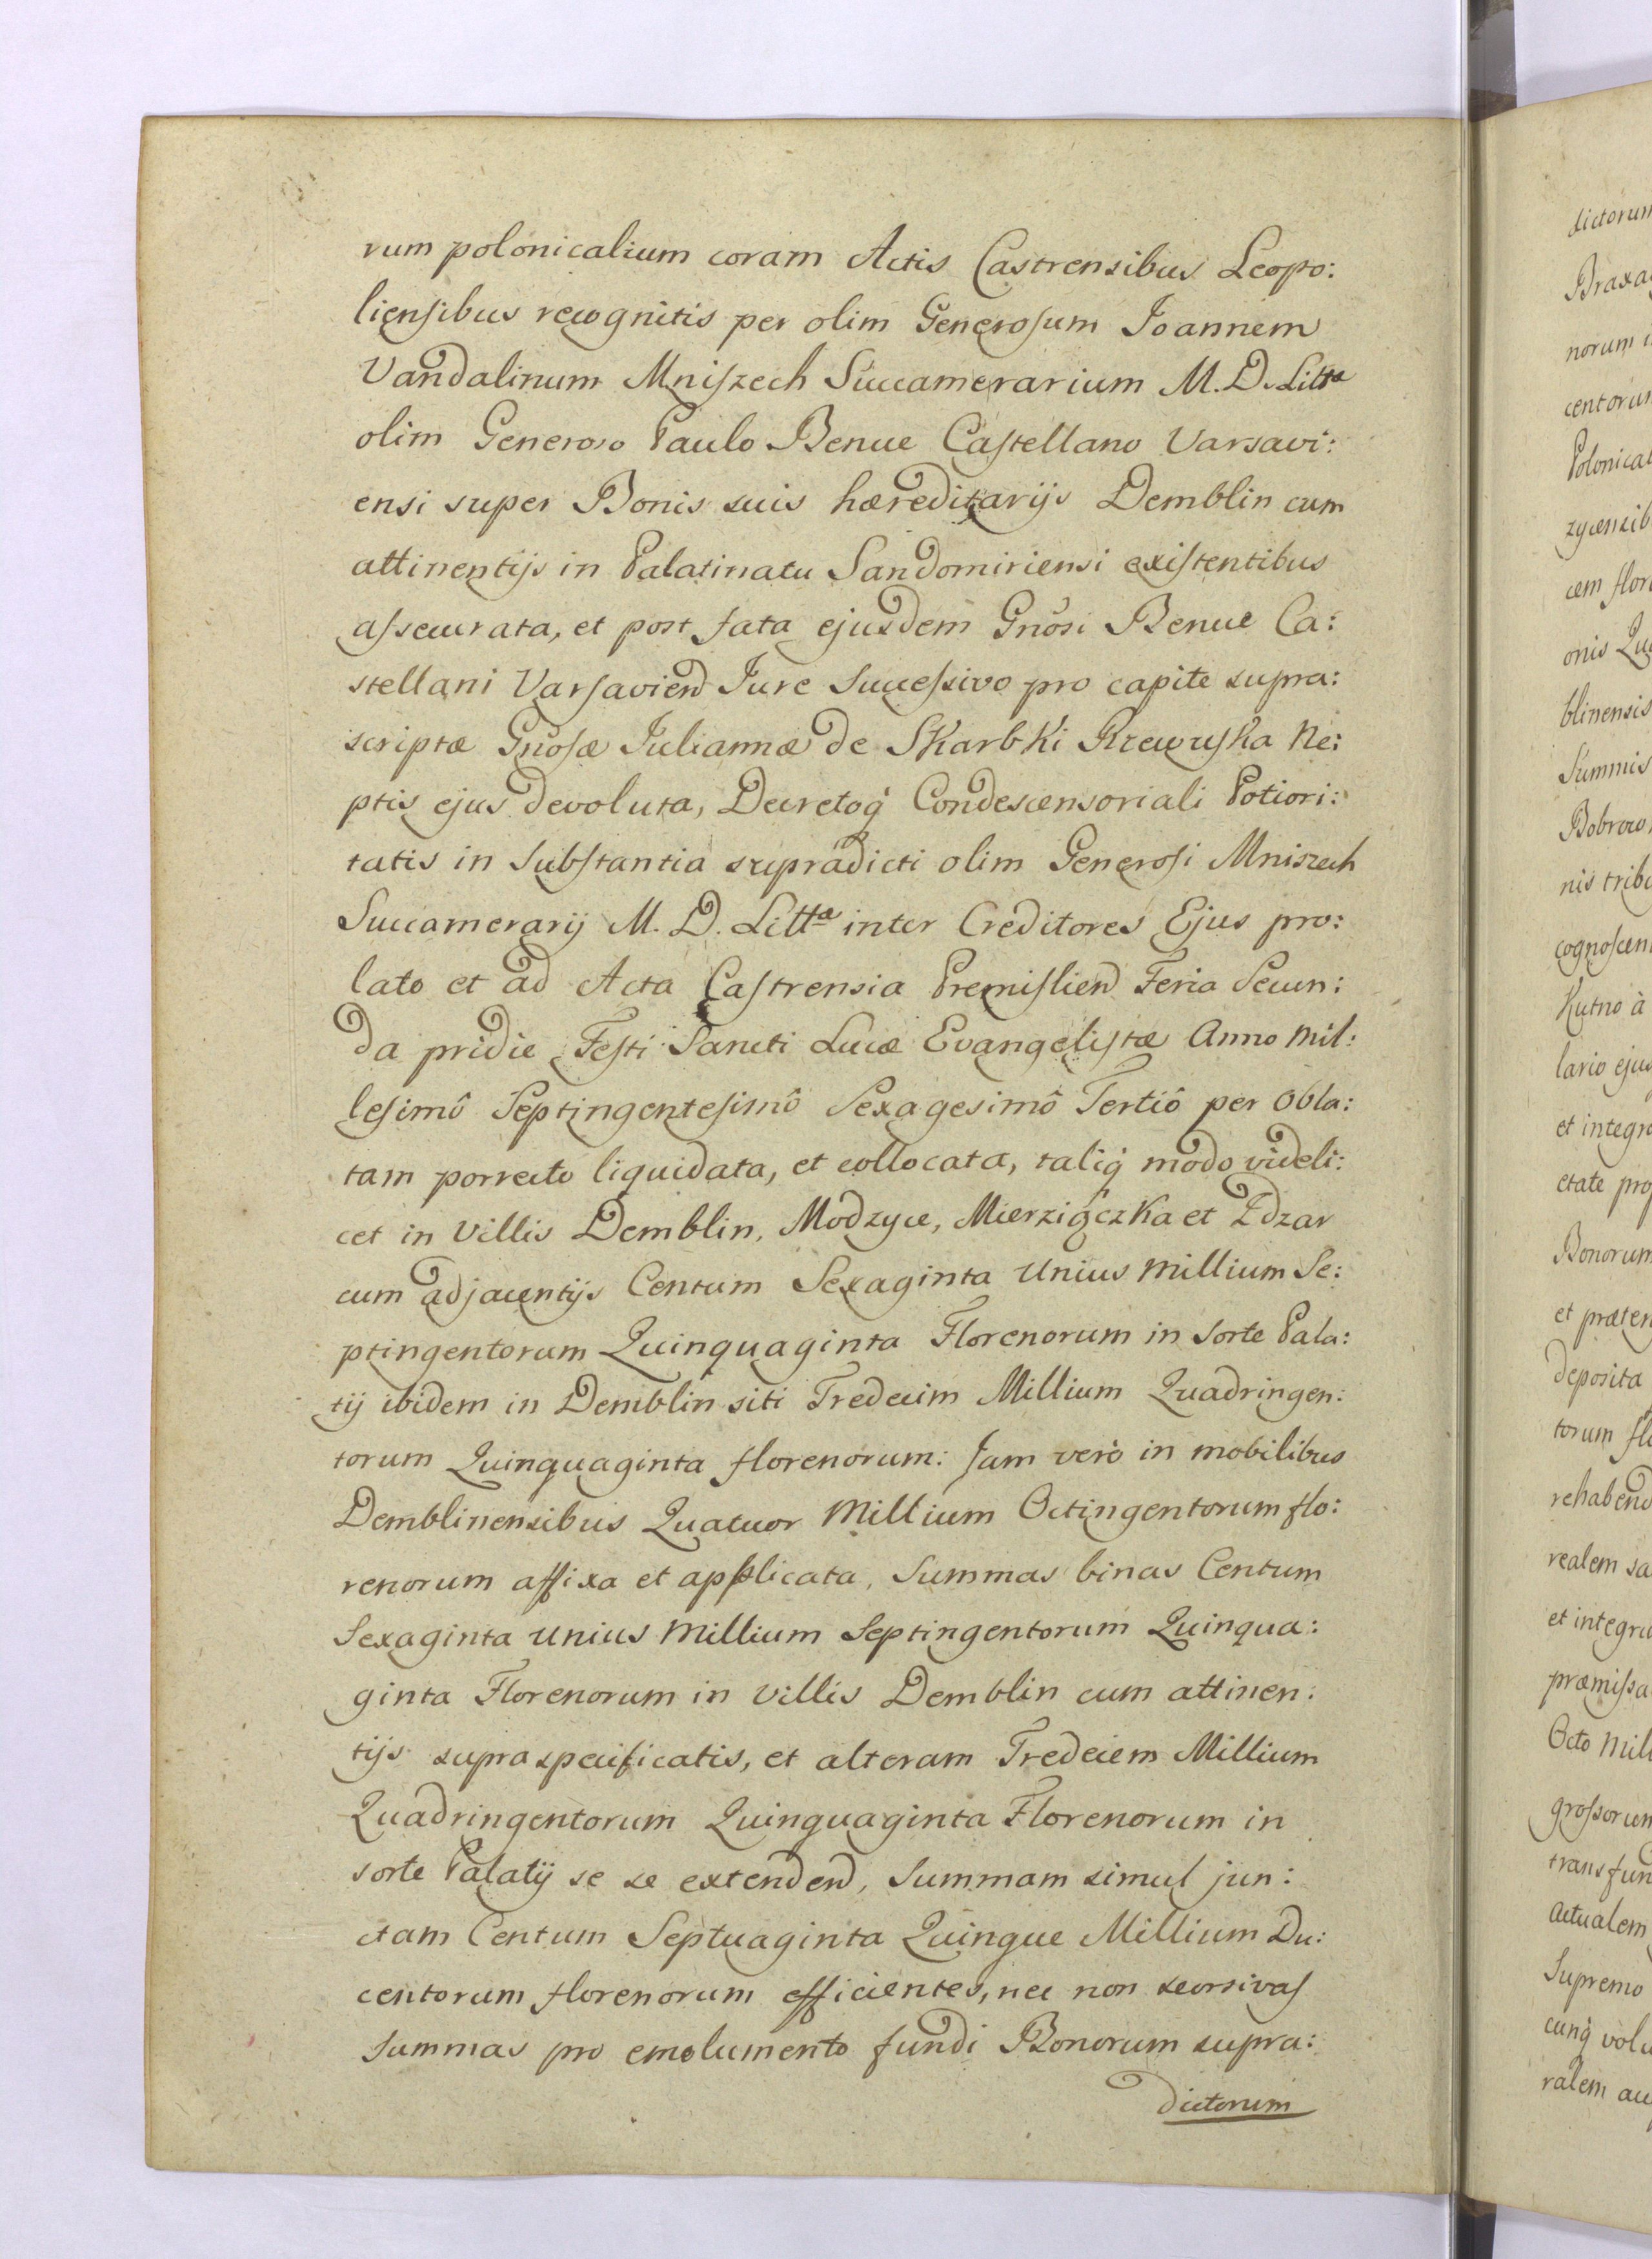 rum polonicalium coram Actis Castrensibus Leopo:
liensibus recognitis per olim Generosum Joannem
Vandalinum Mniszech Succamerarium M. D. Littæ
olim Generoso Paulo Benue Castellano Varsavi:
ensi super Bonis suis hæreditarijs Demblin cum
attinentijs in Palatinatu Sandomiriensi existentibus
assecurata, et post fata ejusdem Gnosi Benue Ca:
stellani Varsavien Jure Successivo pro capite supra:
scriptæ Gnosæ Juliannæ de Skarbki Krewuska Ne:
ptis ejus devoluta, Decretoq Condescensoriali Potiori:
tatis in Substantia supradicti olim Generosi Mniszech
Succamerarij M. D. Littæ inter Creditores Ejus pro:
lato et ad Acta Castrensia Premislien Feria Secun:
da pridie Festi Sancti Lucæ Evangelistæ Anno Mil:
lesimô Septingentesimô Sexagesimô Tertiô per Obla:
tam porrecto liquidata, et collocata, taliq modo videli:
cet in Villis Demblin, Modzyce, Mierziączka et Zdzar
cum adjacentijs Centum Sexaginta Unius Millium Se:
ptingentorum Quinquaginta Florenorum in Sorte Pala:
tij ibidem in Demblin siti Tredecim Millium Quadringen:
torum Quinquaginta florenorum: Jam verò in mobilibus
Demblinensibus Quatuor Millium Octingentorum flo:
renorum affixa et applicata, Summas binas Centum
Sexaginta Unius Millium Septingentorum Quinqua:
ginta Florenorum in Villis Demblin cum attinen:
tijs supraspecificatis, et alteram Tredeciem Millium
Quadringentorum Quinquaginta Florenorum in
sorte Palatij se se extenden, Summam simul jun:
ctam Centum Septuaginta Quinque Millium Du:
centorum florenorum efficientes, nec non seorsivas
Summas pro emolumento fundi Bonorum supra:
dictorum
dictorum
norum
Polonica
cem flor
onis
blinensis
Summis
nis
Kutno à
lario
et integr
Bonorum
et
deposita
torum
realem sa
et integr
Octo Mil
Actualem
Supremo
ralem